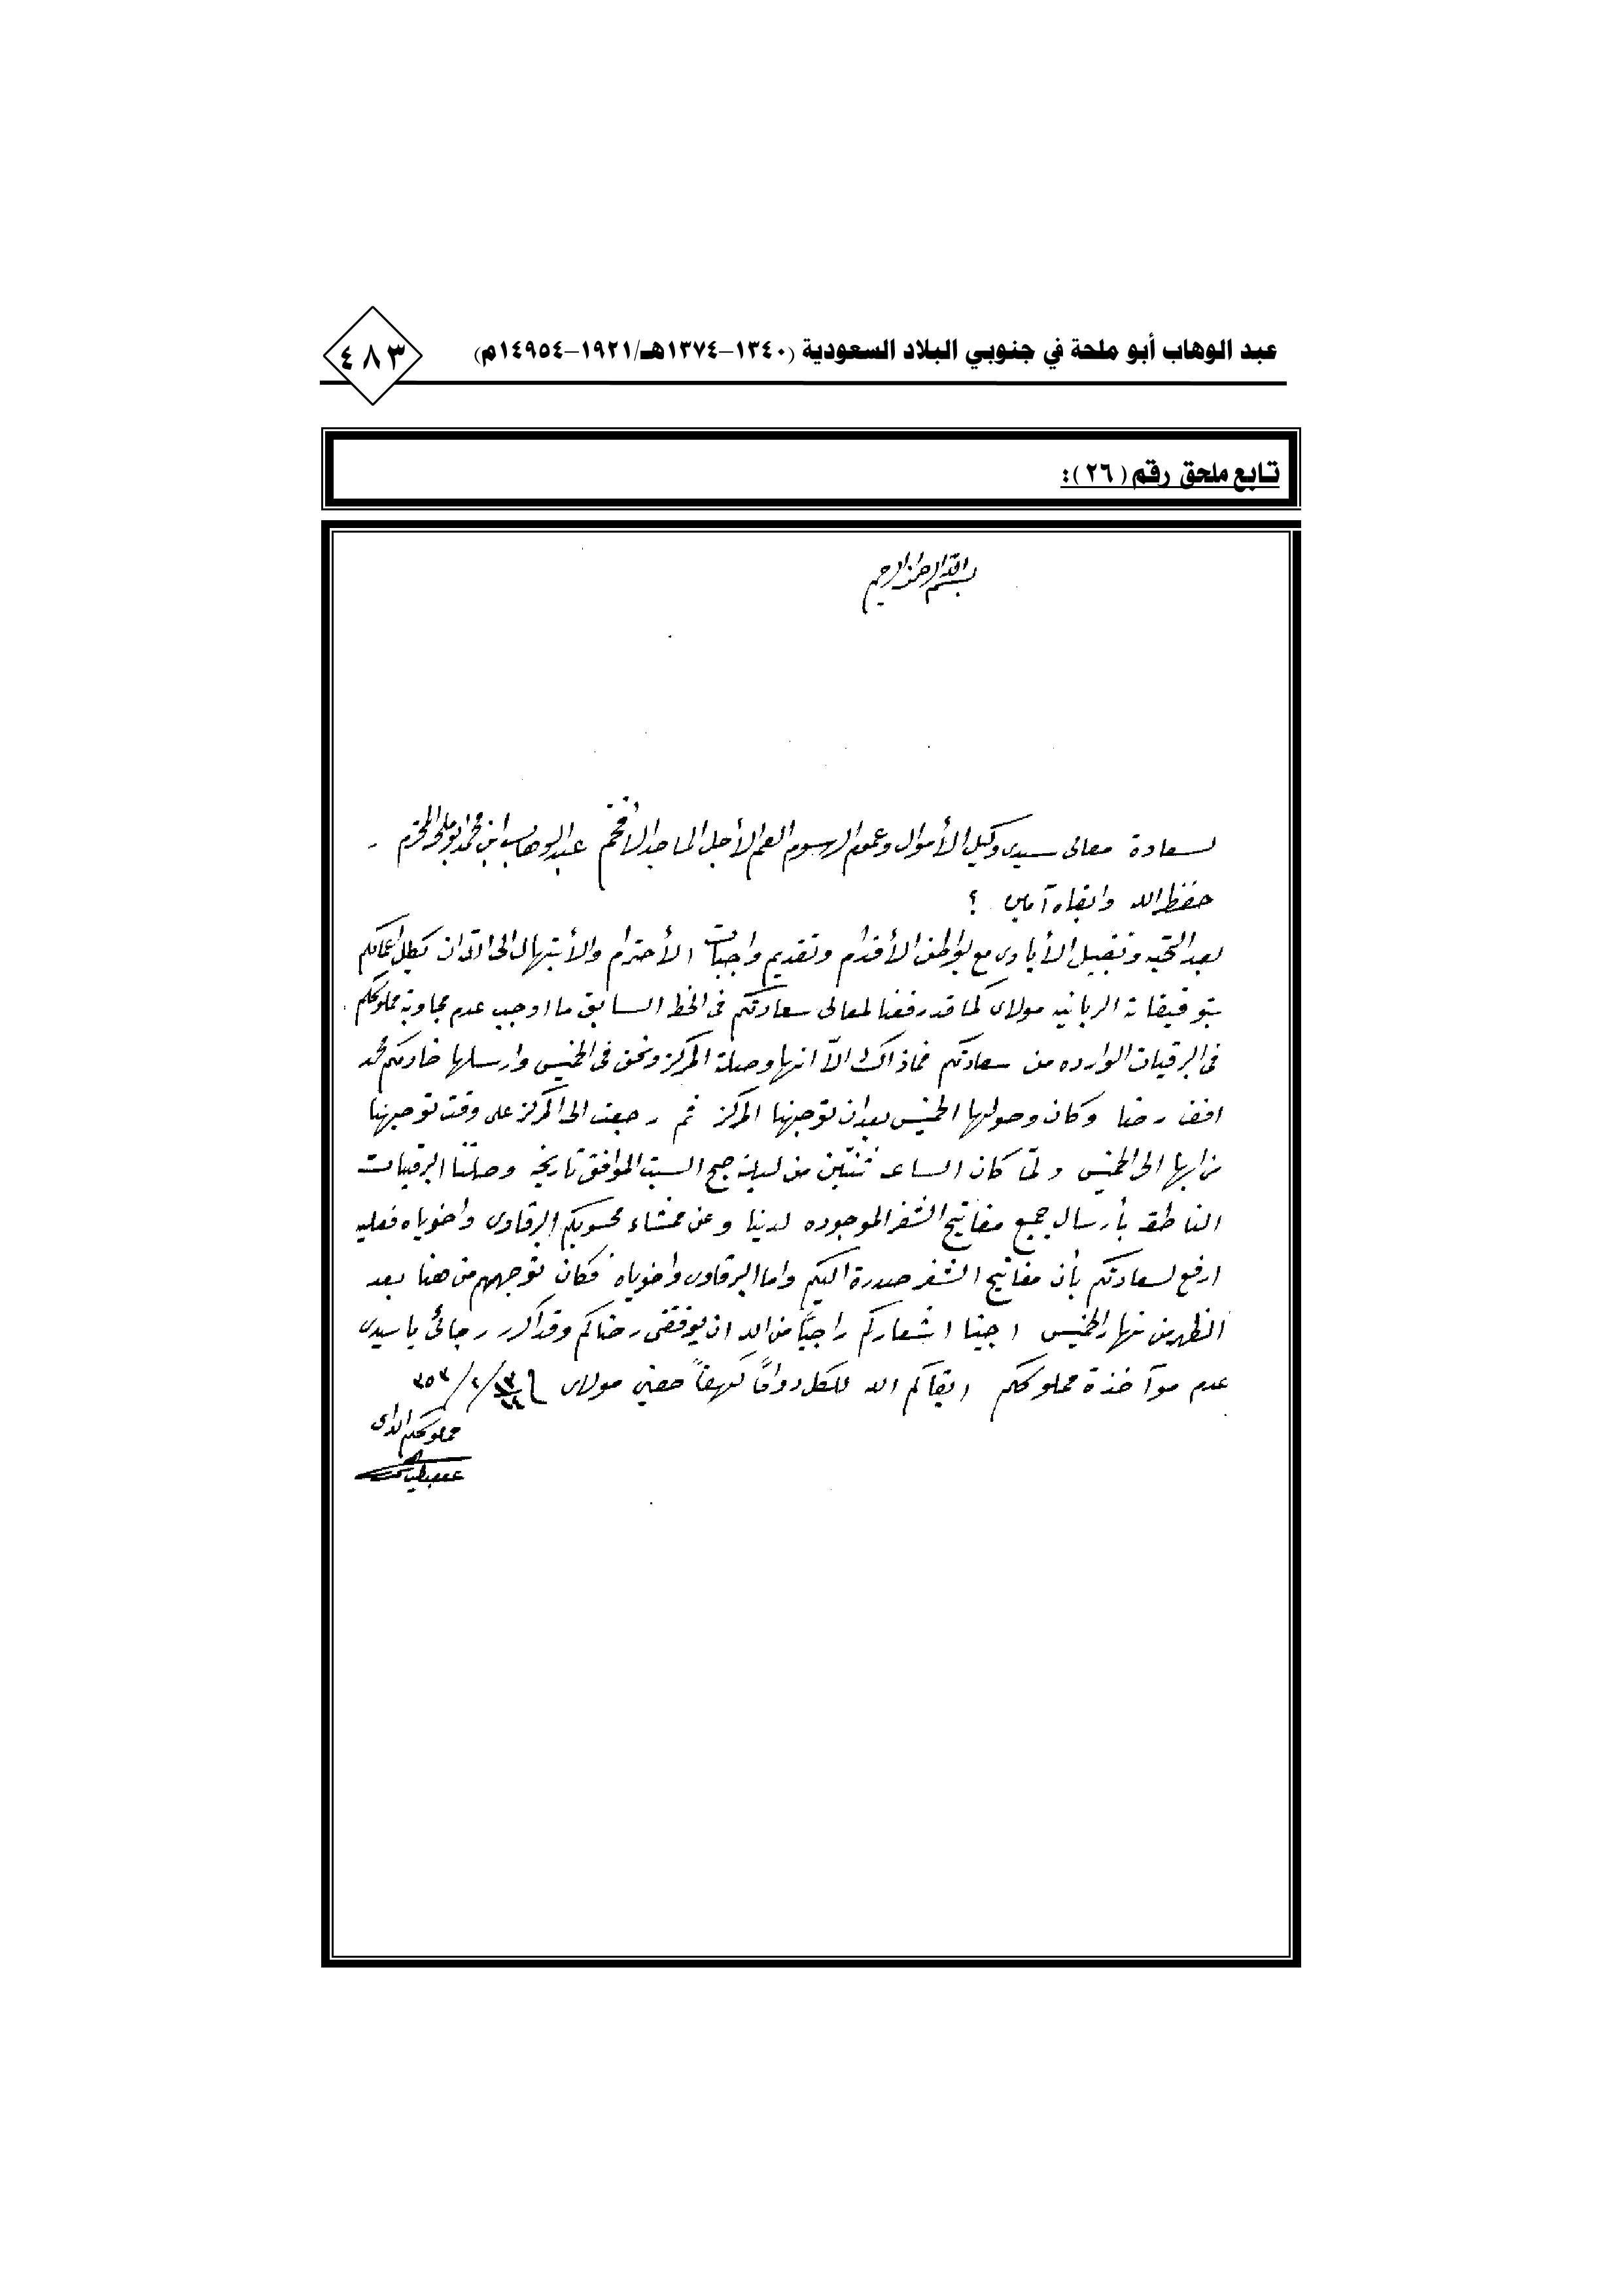 عبد الوهاب أبو ملحة في جنوبي البلاد السعودية (١٣٤٠-١٣٧٤هـ/١٩٢١-١٤٩٥٤م)
٤٨٣
تابع ملحق رقم (٢٦):
بسم الله الرحمن الرحيم
لسعادة معالى سيدى وكيل الأموال وعموم الرسوم العم الأجل الماجد الافخم عبد الوهاب ابن محمد ابو ملحه المحترم
حفظ الله وابقاه آمين ؟
بعد التحيه وتقبيل الأيادى مع بواطن الأقدام وتقديم واجبات الأحترام والأبتهال الى الله ان يكلل اعمالكم
بتوفيقاته الربانيه مولاى كما قد رفعنا لمعالى سعادتكم فى الخط السابق ما اوجب عدم مجاوبة مملوككم
فى البرقيات الوارده من سعادتكم فماذاك الاّ انها وصلة المركز ونحن فى الخميس وارسلها خادمكم محمد
رضا وكان وصولها الخميس بعد ان توجهنا المركز ثم رجعت الى المركز على وقت توجهنا
من ابها الى الخميس ولمّا كان الساعه ثنتين من ليلة صبح السبت الموافق تاريخه وصلتنا البرقيات
الناطقه بأرسال جميع مفاتيح الشفر الموجوده لدينا وعن ممشاء محسوبكم البرقاوى واخوياه فعليه
ارفع لسعادتكم بأن مفاتيح الشفر صدرة اليكم واما البرقاوى واخوياه فكان توجههم من هنا بعد
الظهر من نهار الخميس اجبنا اشعاركم راجيًا من الله ان يوفقنى رضاكم وقد اكرر رجائى يا سيدى
عدم موآخذة مملوككم ابقاكم الله للكل دوامًا كهفاً مولاى ٢/٣٥٣
مملوككم الداى